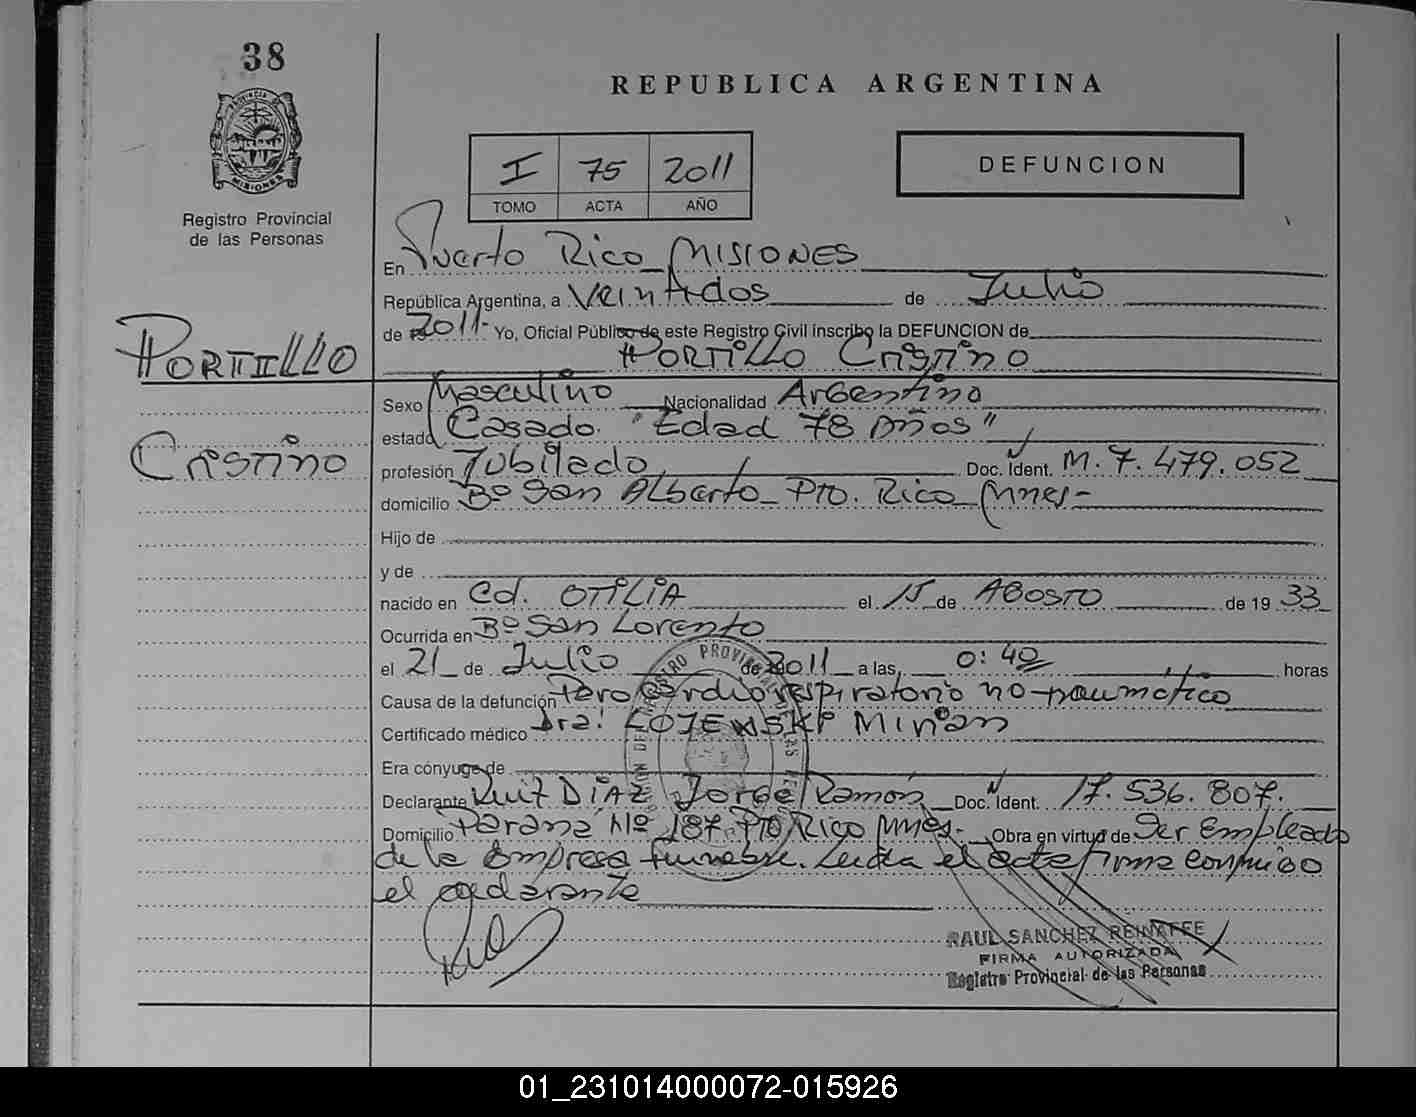 38
REPUBLICA ARGENTINA
PROVINCIA DE
MISIONES
Registro Provincial
de las Personas
I 75 2011
TOMO ACTA AÑO
DEFUNCION
En Puerto Rico Misiones
República Argentina, a Veintidos de Julio
de 2011- Yo, Oficial Público de este Registro Civil inscribo la DEFUNCION de
PORTILLO
PORTILLO Cristino
Sexo Masculino Nacionalidad Argentino
estado Casado. "Edad 78 Años"
Cristino
profesión Jubilado Doc. Ident. M. 7.479.052
domicilio Bº San Alberto - Pto. Rico Mnes-
Hijo de
y de
nacido en Cd. OTILIA el 15 de AGOSTO de 19 33
Ocurrida en Bº San Lorenzo
el 21 de Julio de 2011 a las 0:40 horas
Causa de la defunción Paro Cardiorespiratorio no traumatico
Certificado médico Dra: Mirian
Era cónyuge de
Declarante RUIZ DIAZ Jorge Ramón Doc. Ident. 17.536.807.
Domicilio Paraná Nº 187 Pto Rico Mnes- Obra en virtud de Ser Empleado
de la Empresa funebre. Leida el acta firma conmigo
el declarante
RAUL SANCHEZ
FIRMA AUTORIZADA
Registro Provincial de las Personas
01_231014000072-015926